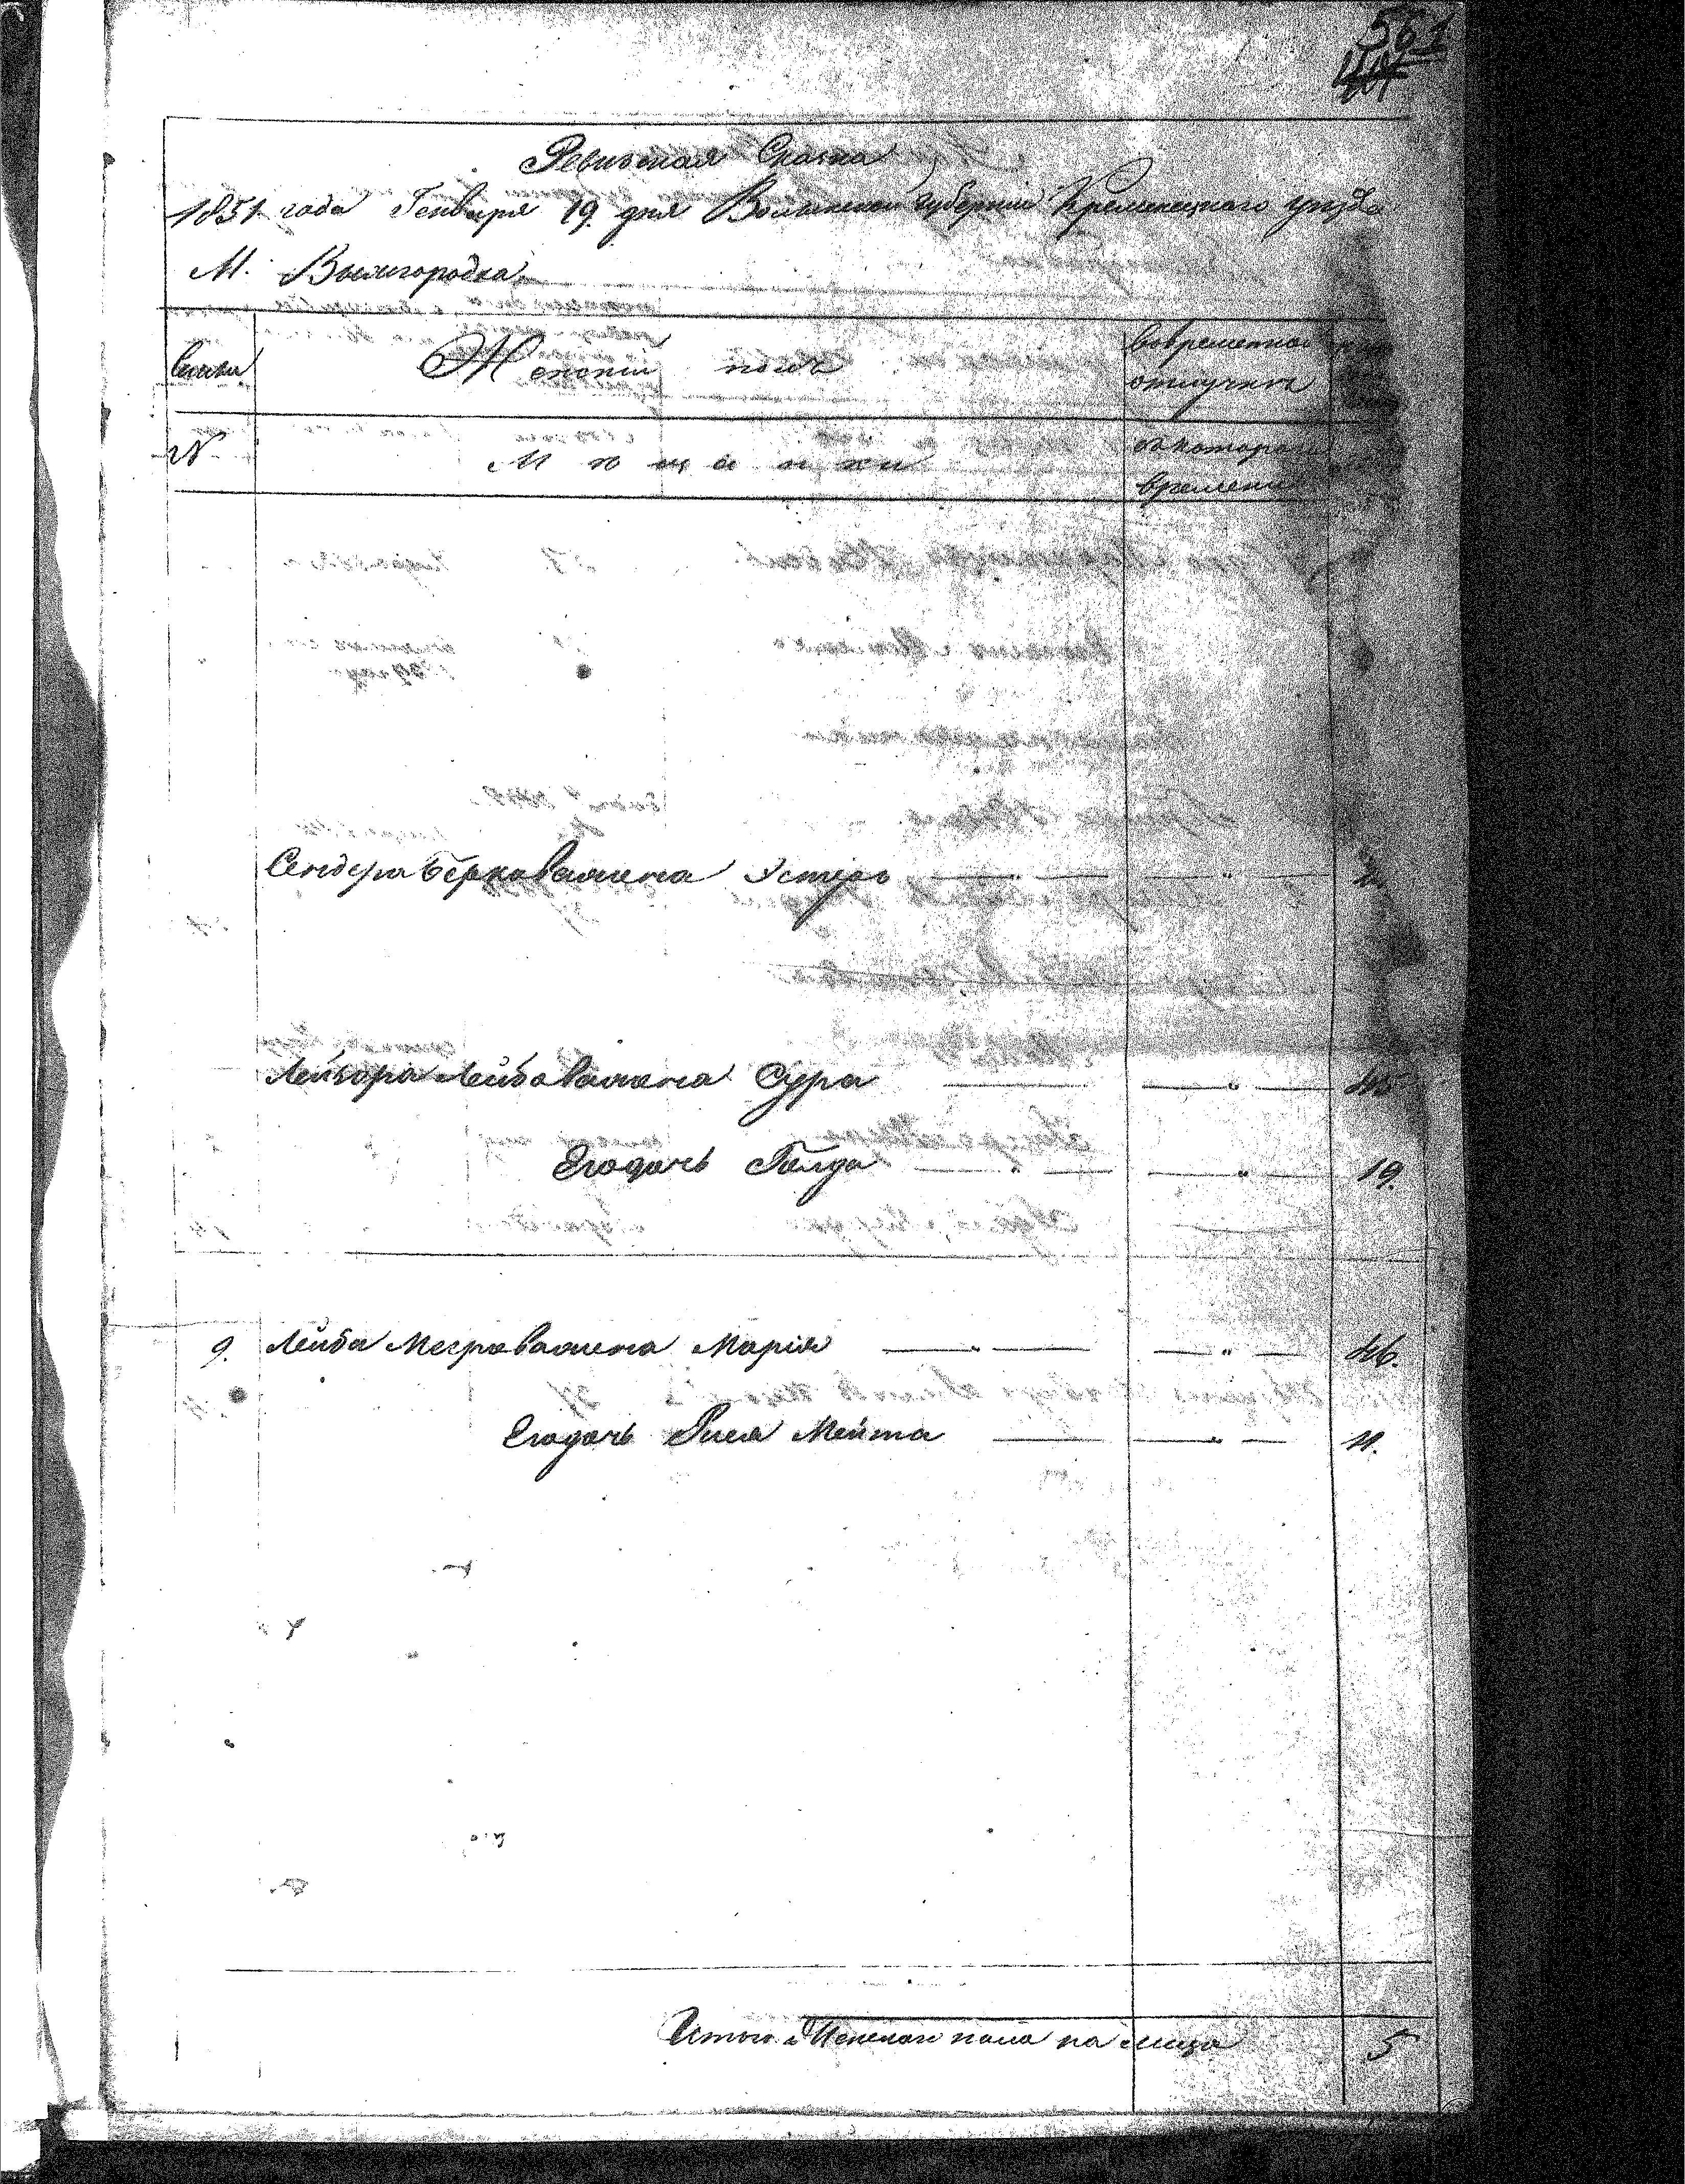 561
Ревизская Сказка
1851 года Генваря 19 дня Волынской губернии Кременецкого уезда
М. Вышгородка
Семьи Женский полъ Вовременной
отлучке
№ Мещанки съ котораго
времени
Сендера Берковажена Эстеръ — " — — " —
Лейзора Лейбоважена Сура — — " — 45
Егодочь Голда — " — — " — 19.
9. Лейба Месероважена Марія — " — — " — 46.
Егодочь Рися Мейта — — " — 11.
Итого Женскаго пола на лицо 5